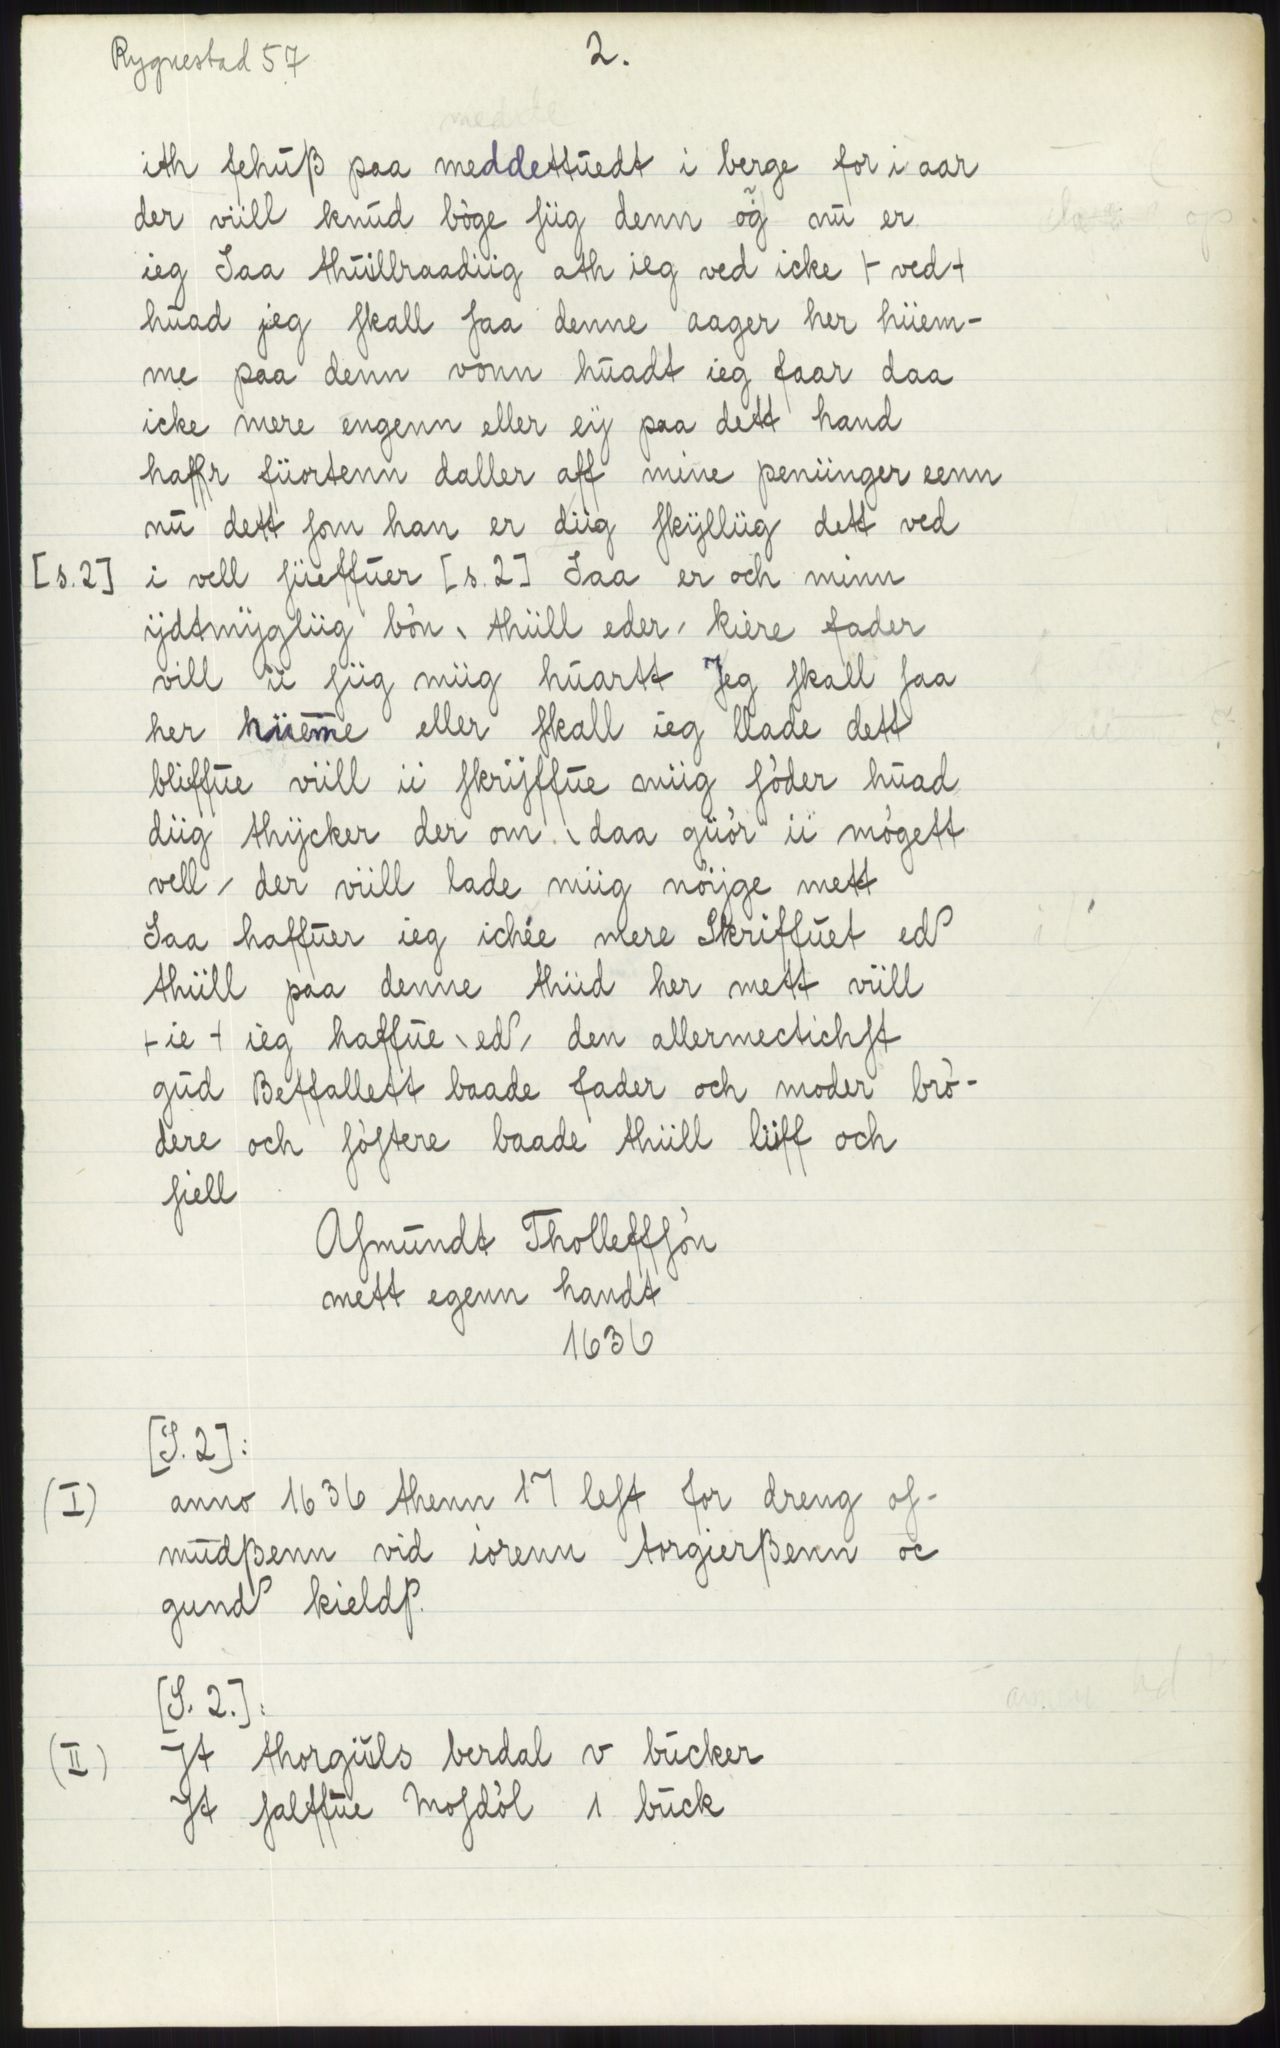 Rygnestad 57
2.
medete
ith fehūß paa meddettūedt i berge for i aar
der viill knūd bòge ſiig denn og̃ nū er
ieg Saa thūillraadiig ath ieg ved icke ⊢ ved ⊣
hūad jeg ſkall ſaa denne aager her hiiem-
me paa denn vonn hūadt ieg faar daa
icke mere engenn eller eÿ paa dett hand
haffr fiiortenn daller aff mine peniinger eenn
nū dett ſom han er diig ſkÿlliig dett ved
[s.2] i vell ſiieffūer [s.2] Saa er och minn
ÿdtmÿgliig bòn ˎ thiill eder ˊ kiere fader
vill ii ſiig miig hūartt Jeg ſkall ſaa
her hiiem̄e eller ſkall ieg llade dett
bliffūe viill ii ſkrÿffūe miig ſòder hūad
diig thÿcker der om ˎ daa giiòr ii mògett
vell ˊ der viill lade miig nòÿge mett
Saa haffūer ieg ichée mere Skriffūet ed̛
thiill paa denne thiid her mett viill
⊢ ie ⊣ ieg haffūe ˎ ed̛ ˊ den allermectichſt
gūd Beffallett baade fader och moder brò-
dere och ſòſtere baade thiill liiff och
ſiell
Aſmūndt Tholleffſòn
mett egenn handt
1636
[S.2]:
(I) anno 1636 thenn 17 leſt for dreng oſ-
mūdßenn vid iorenn torgierßenn oc
gund̛ kieldß.
[S. 2.]:
(II) Jt thorgiūls berdal v būcker
Jt ſalffūe Moſdòl 1 būck